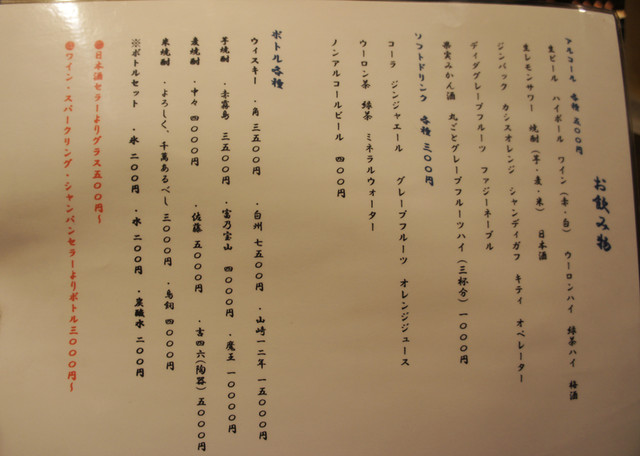 お飲み物
アルコール 各種 五〇〇円
生ビール ハイボール ワイン(赤・白) ウーロンハイ 緑茶ハイ 梅酒
生レモンサワー 焼酎(芋・麦・米) 日本酒
ジンバック カシスオレンジ シャンディガフ キティ オペレーター
ディタグレープフルーツ ファジーネーブル
果実みかん酒 丸ごとグレープフルーツハイ(三杯分) 一〇〇〇円
ソフトドリンク 各種 三〇〇円
コーラ ジンジャエール グレープフルーツ オレンジジュース
ウーロン茶 緑茶 ミネラルウォーター
ノンアルコールビール 四〇〇円
ボトル各種
ウィスキー ・角 三五〇〇円 ・白州 七五〇〇円 ・山崎一二年 一五〇〇〇円
芋焼酎 ・赤霧島 三五〇〇円 ・富乃宝山 四〇〇〇円 ・魔王 一〇〇〇〇円
麦焼酎 ・中々 四〇〇〇円 ・佐藤 五〇〇〇円 ・吉四六(陶器) 五〇〇〇円
米焼酎 ・よろしく、千萬あるべし 三〇〇〇円 ・鳥飼 四〇〇〇円
※ボトルセット ・氷 二〇〇円 ・水 二〇〇円 ・炭酸水 二〇〇円
日本酒セラーよりグラス五〇〇円~
ワイン・スパークリング・シャンパンセラーよりボトル三〇〇〇円~